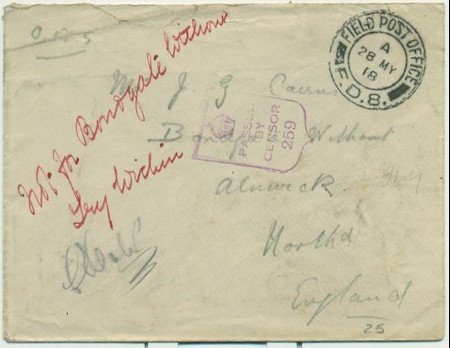 O.A.S
FIELD POST OFFICE
A
28 MY
18
F.D.8.
Not for Bondgate Without
Try Within
M J G Cairns
PASSED
BY
CENSOR
259
Bondgate Without
Alnwick
North'd
England
25